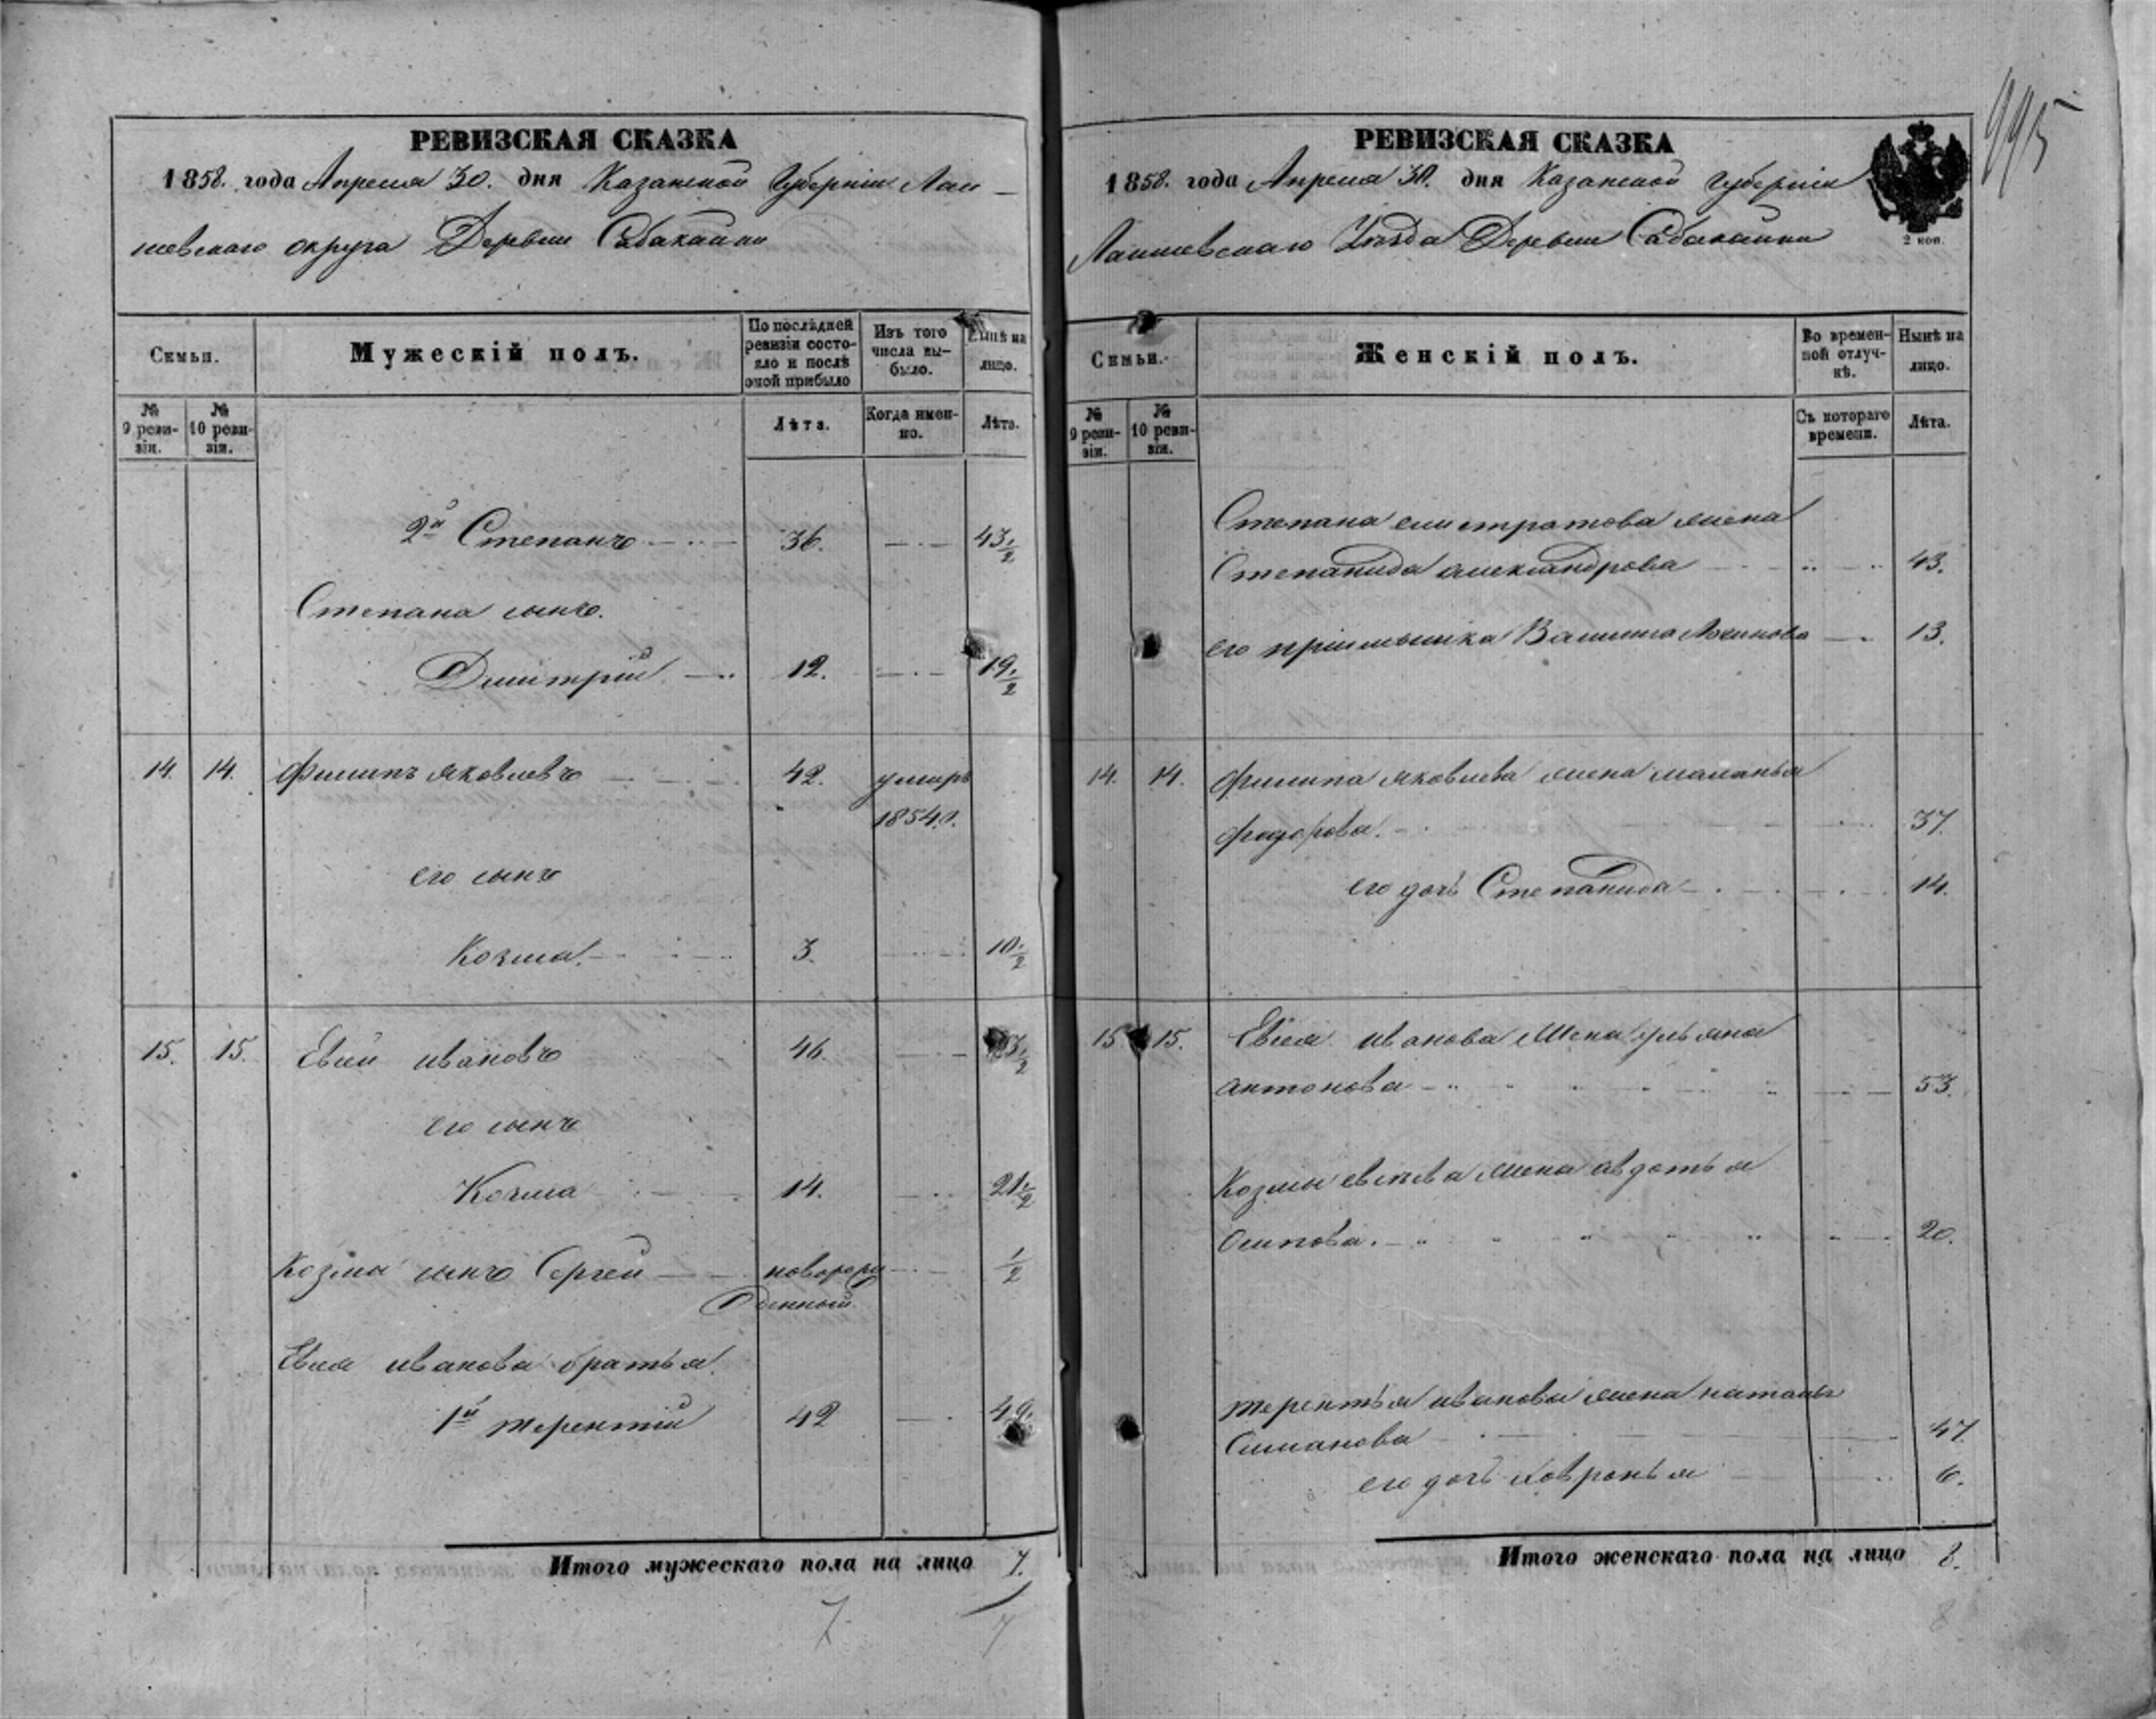 995
РЕВИЗСКАЯ СКАЗКА
1858. года Апреля 30. дня Казанской Губерніи Лаи-
шевскаго округа Деревни Сабакайки
Семьи.
Мужескій полъ.
По послѣдней ревизіи состояло и послѣ оной прибыло
Изъ того числа выбыло.
Нынѣ на лицо.
№ 9 ревизіи.
№ 10 ревизіи.
Лѣта.
Когда именно.
Лѣта.
2й Степанъ 36. 43 1/2
Степана сынъ.
Димитрій 12. 19 1/2
14. 14. Филипъ Яковлевъ 42. умеръ
1854.г.
его сынъ
Козма 3. 10 1/2
15. 15. Евсей Ивановъ 46. 53 1/2
его сынъ
Козма 14. 21 1/2
Козмы сынъ Сергей новорож 1/2
денный
Евсея Иванова братья
1й Терентій 42 49.
Итого мужескаго пола на лицо 7.
7 7
РЕВИЗСКАЯ СКАЗКА
1858. года Апреля 30. дня Казанской Губерніи
Лаишевскаго Уѣзда Деревни Сабакайки
2 коп.
Семьи.
Женскій полъ.
Во временной отлучкѣ.
Нынѣ на лицо.
№ 9 ревизіи.
№ 10 ревизіи.
Съ котораго времени.
Лѣта.
Степана елистратова жена
Степанида александрова 43.
его 13.
14. 14. Филипа яковлева жена маланья
федорова. 37.
его дочь Степанида 14.
15 15. Евсея иванова жена ульяна
антонова 53.
Козмы евсѣева жена авдотья
Осипова. 20.
терентья иванова жена наталья
Симанова 47
его дочь ховронья 6.
Итого женскаго пола на лицо 8.
8